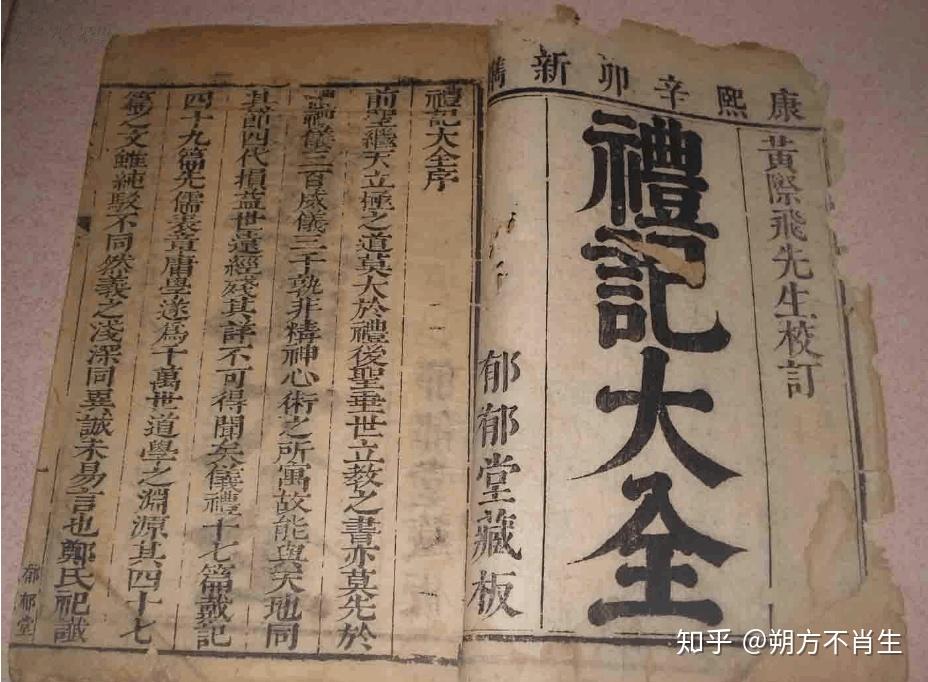 康熙辛卯新鐫
黃際飛先生校訂
禮記大全
郁郁堂藏板
禮記大全序
前聖繼天立極之道莫大於禮後聖垂世立教之書亦莫先於
禮儀三百威儀三千孰非精神心術之所寓故能與天地同
其節四代損益世遠經殘其詳不可得聞矣儀禮十七篇戴記
四十九篇先儒表章庸學遂為千萬世道學之淵源其四十七
篇之文雖純駁不同然義之淺深同異誠未易言也鄭氏祀讖
郁郁堂
知乎 @朔方不肖生